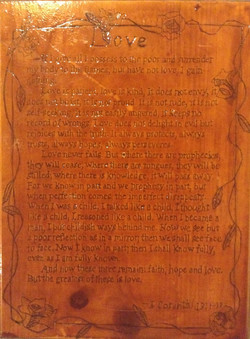 Love
to the poor and surrender
but have not love, I gain
Love is patient, love is kind. It does not envy, it
is not proud. It is not rude, it is not
self-seeking, it is not easily angered, it keeps no
record of wrongs. Love does not delight in evil but
rejoices with the truth. It always protects, always
trusts, always hopes, always perseveres.
Love never fails. But where there are prophecies,
they will cease; where there are tongues, they will be
stilled; where there is knowledge, it will pass away.
For we know in part and we prophesy in part, but
when perfection comes, the imperfect disappears.
When I was a child, I talked like a child, I thought
like a child, I reasoned like a child. When I became a
man, I put childish ways behind me. Now we see but
a poor reflection as in a mirror; then we shall see face
to face. Now I know in part; then I shall know fully,
even as I am fully known.
And now these three remain: faith, hope and love.
But the greatest of these is love.